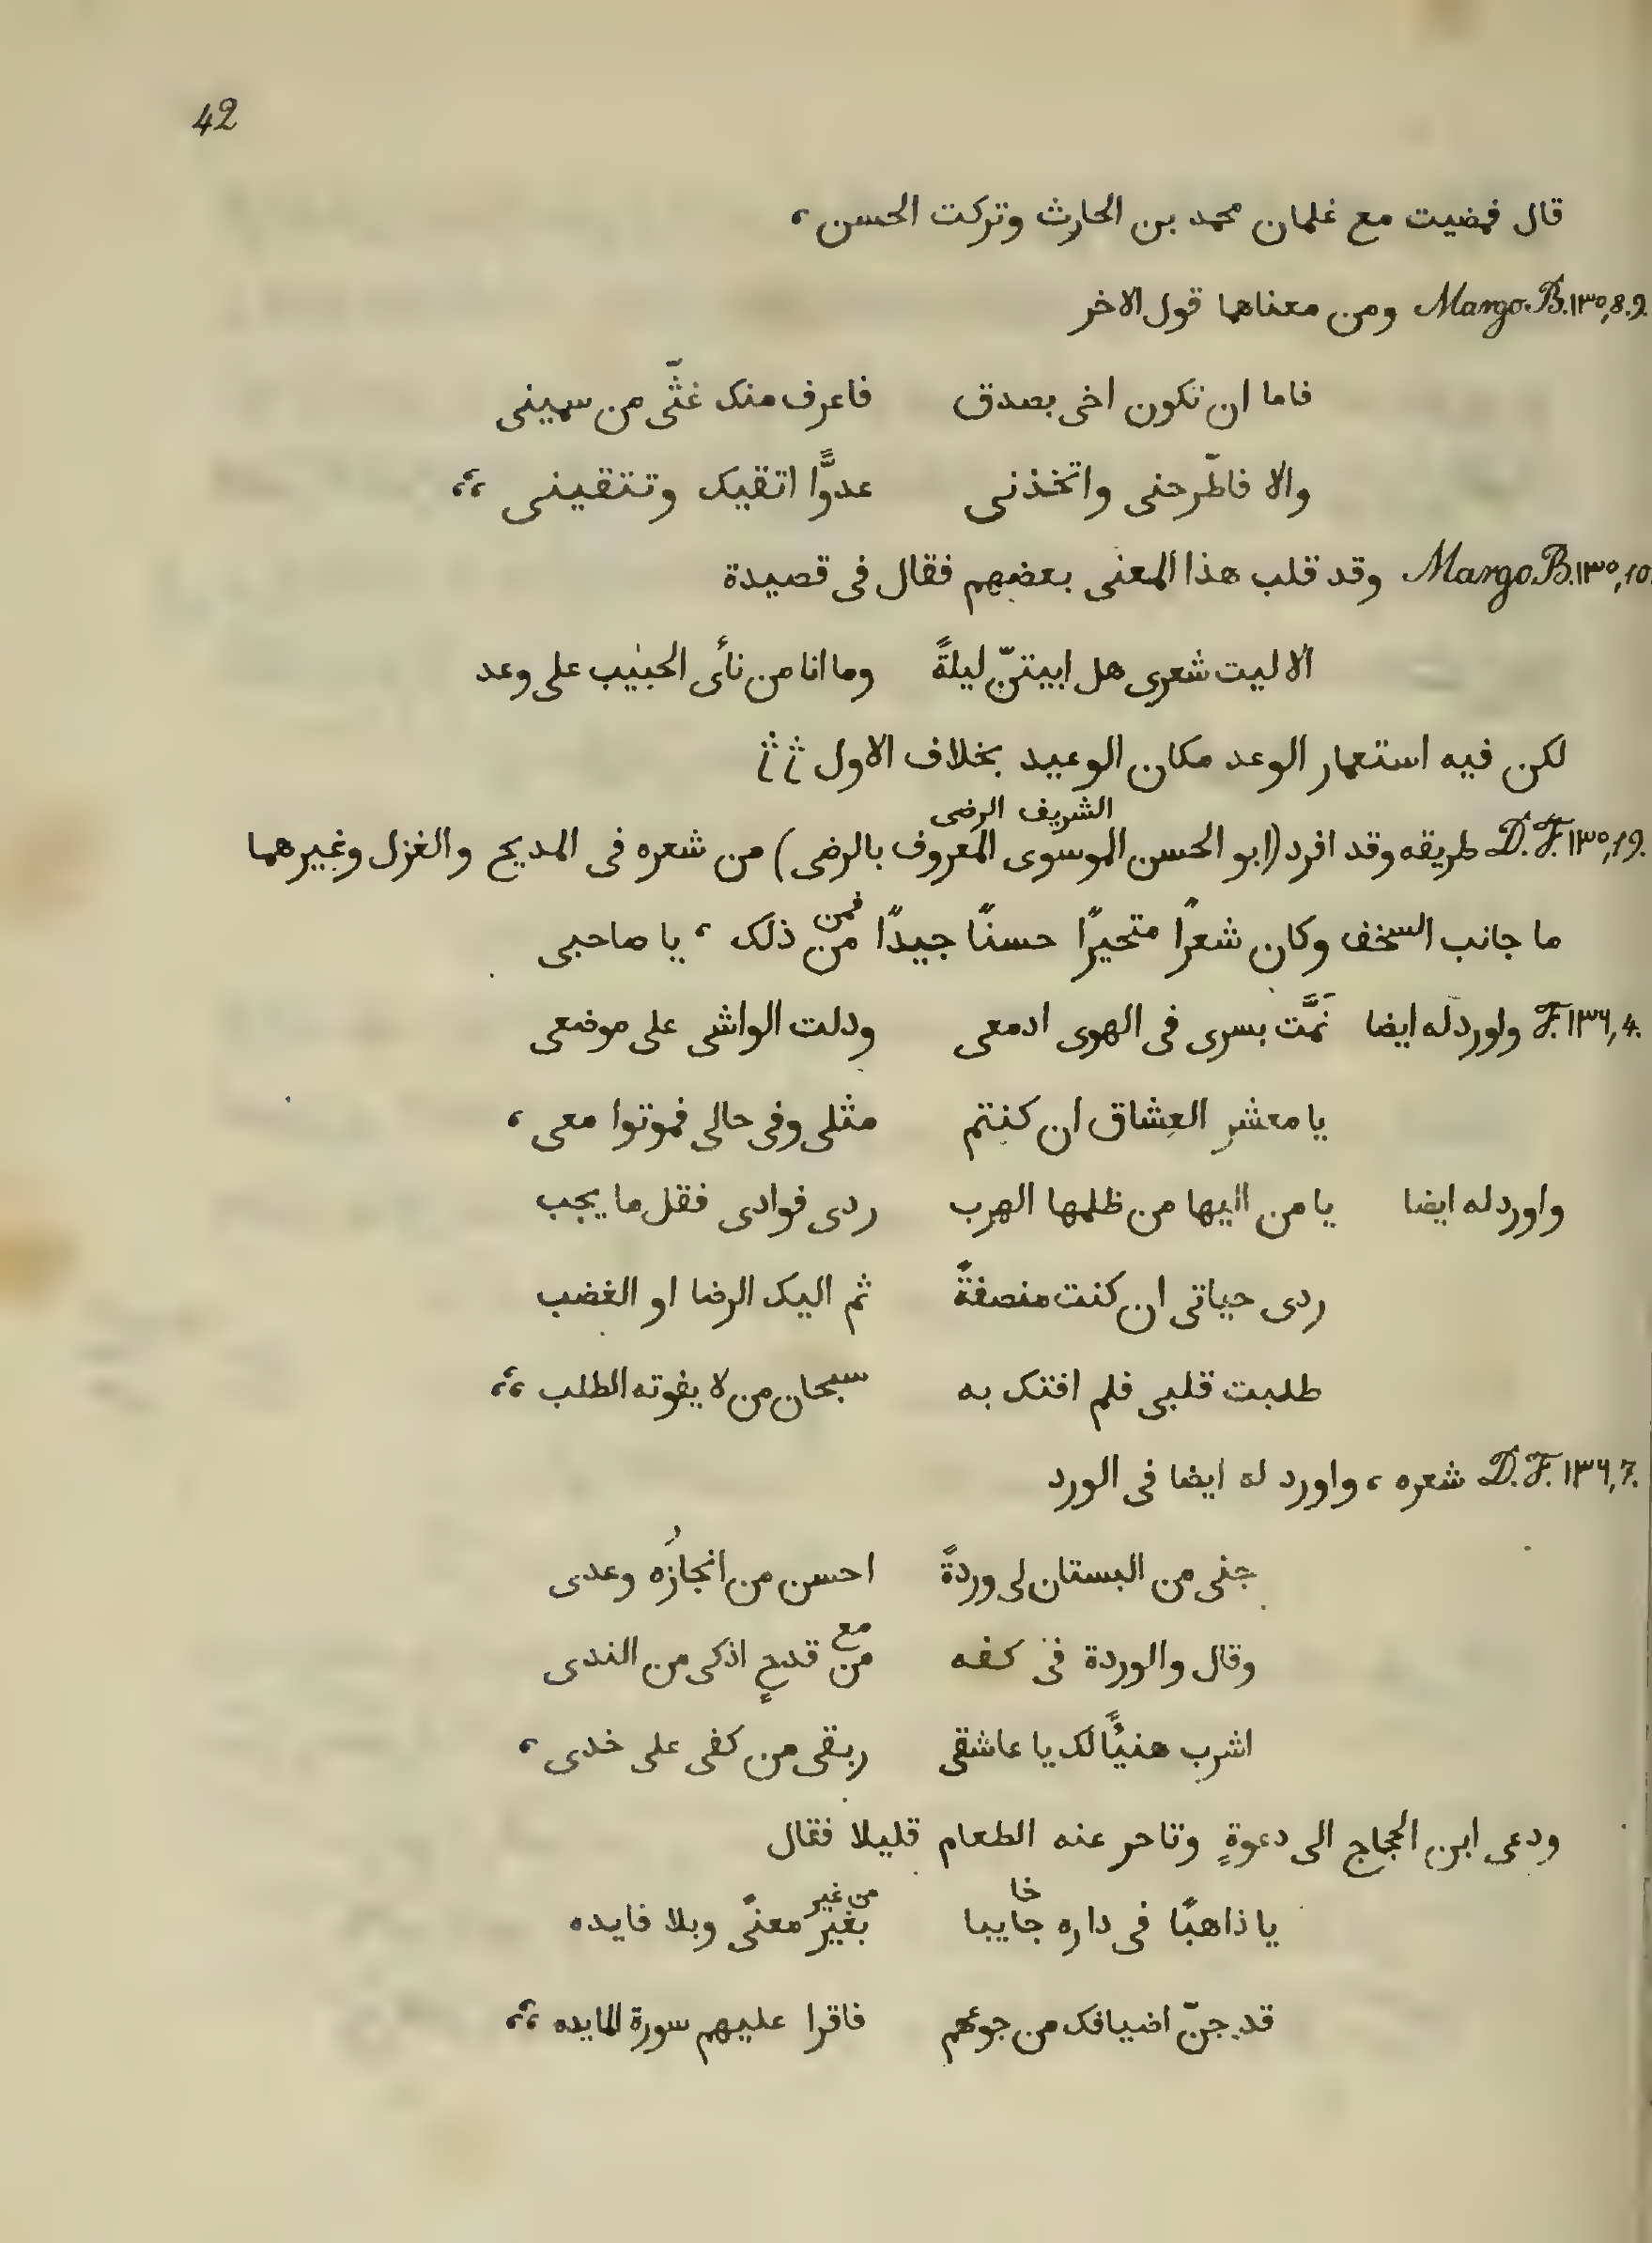 42
قال فمضيت مع غلمان محمد بن الحارث وتركت الحسن ،
Margo. B. ١٣٥, 8.9. ومن معناها قول الاخر
فاما ان تكون اخى بصدق فاعرف منك غثّى من سمينى
والا فاطّرحنى واتخذنى عدوًّا اتقيك وتتقينى ؛
Margo. B. ١٣٥, 10. وقد قلب هذا المعنى بعضهم فقال فى قصيدة
الا ليت شعرى هل ابيتنّ ليلةً وما انا من نأى الحبيب على وعد
لكن فيه استعمار الوعد مكان الوعيد بخلاف الاول
الشريف الرضى
D. F. ١٣٥, 19. طريقه وقد افرد (ابو الحسن الموسوى المعروف بالرضى) من شعره فى المديح والغزل وغيرهما
فمن
ما جانب السخف وكان شعرًا متحيرًا حسنًا جيدًا من ذلك ، يا صاحبى
F. ١٣٦, 4. واورد له ايضا نَمَّت بسرى فى الهوى ادمعى ودلت الواشى على موضعى
يا معشر العشاق ان كنتم مثلى وفى حالى فموتوا معى ،
واورد له ايضا يا من اليها من ظلمها الهرب ردى فوادى فقل ما يجب
ردى حياتى ان كنت منصفةً ثم اليك الرضا او الغضب
طلبت قلبى فلم افتك به سبحان من لا يفوته الطلب ؛
D. F. ١٣٦, 7. شعره ، واورد له ايضا فى الورد
جنى من البستان لى وردةً احسن من انجازُه وعدى
مع
وقال والوردة فى كفه من قدحٍ اذكى من الندى
اشرب هنيًّا لك يا عاشقى ريقى من كفى على خدى ،
ودعى ابن الحجاج الى دعوةٍ وتاحر عنه الطعام قليلا فقال
خا من غير
يا ذاهبًا فى داره جايبا بغير معنًى وبلا فايده
قد جنّ اضيافك من جوعهم فاقرا عليهم سورة المايده ؛